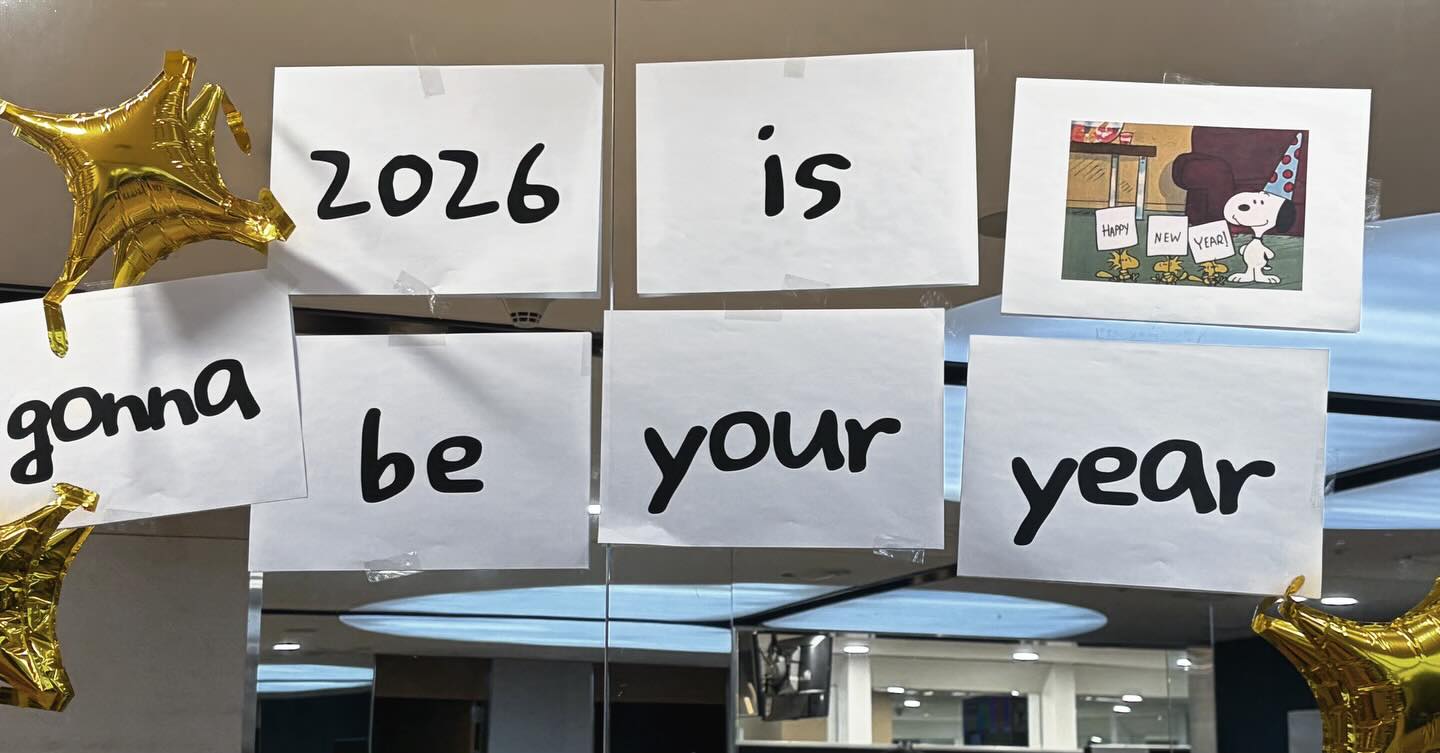 2026 is
HAPPY NEW YEAR!
gonna be your year